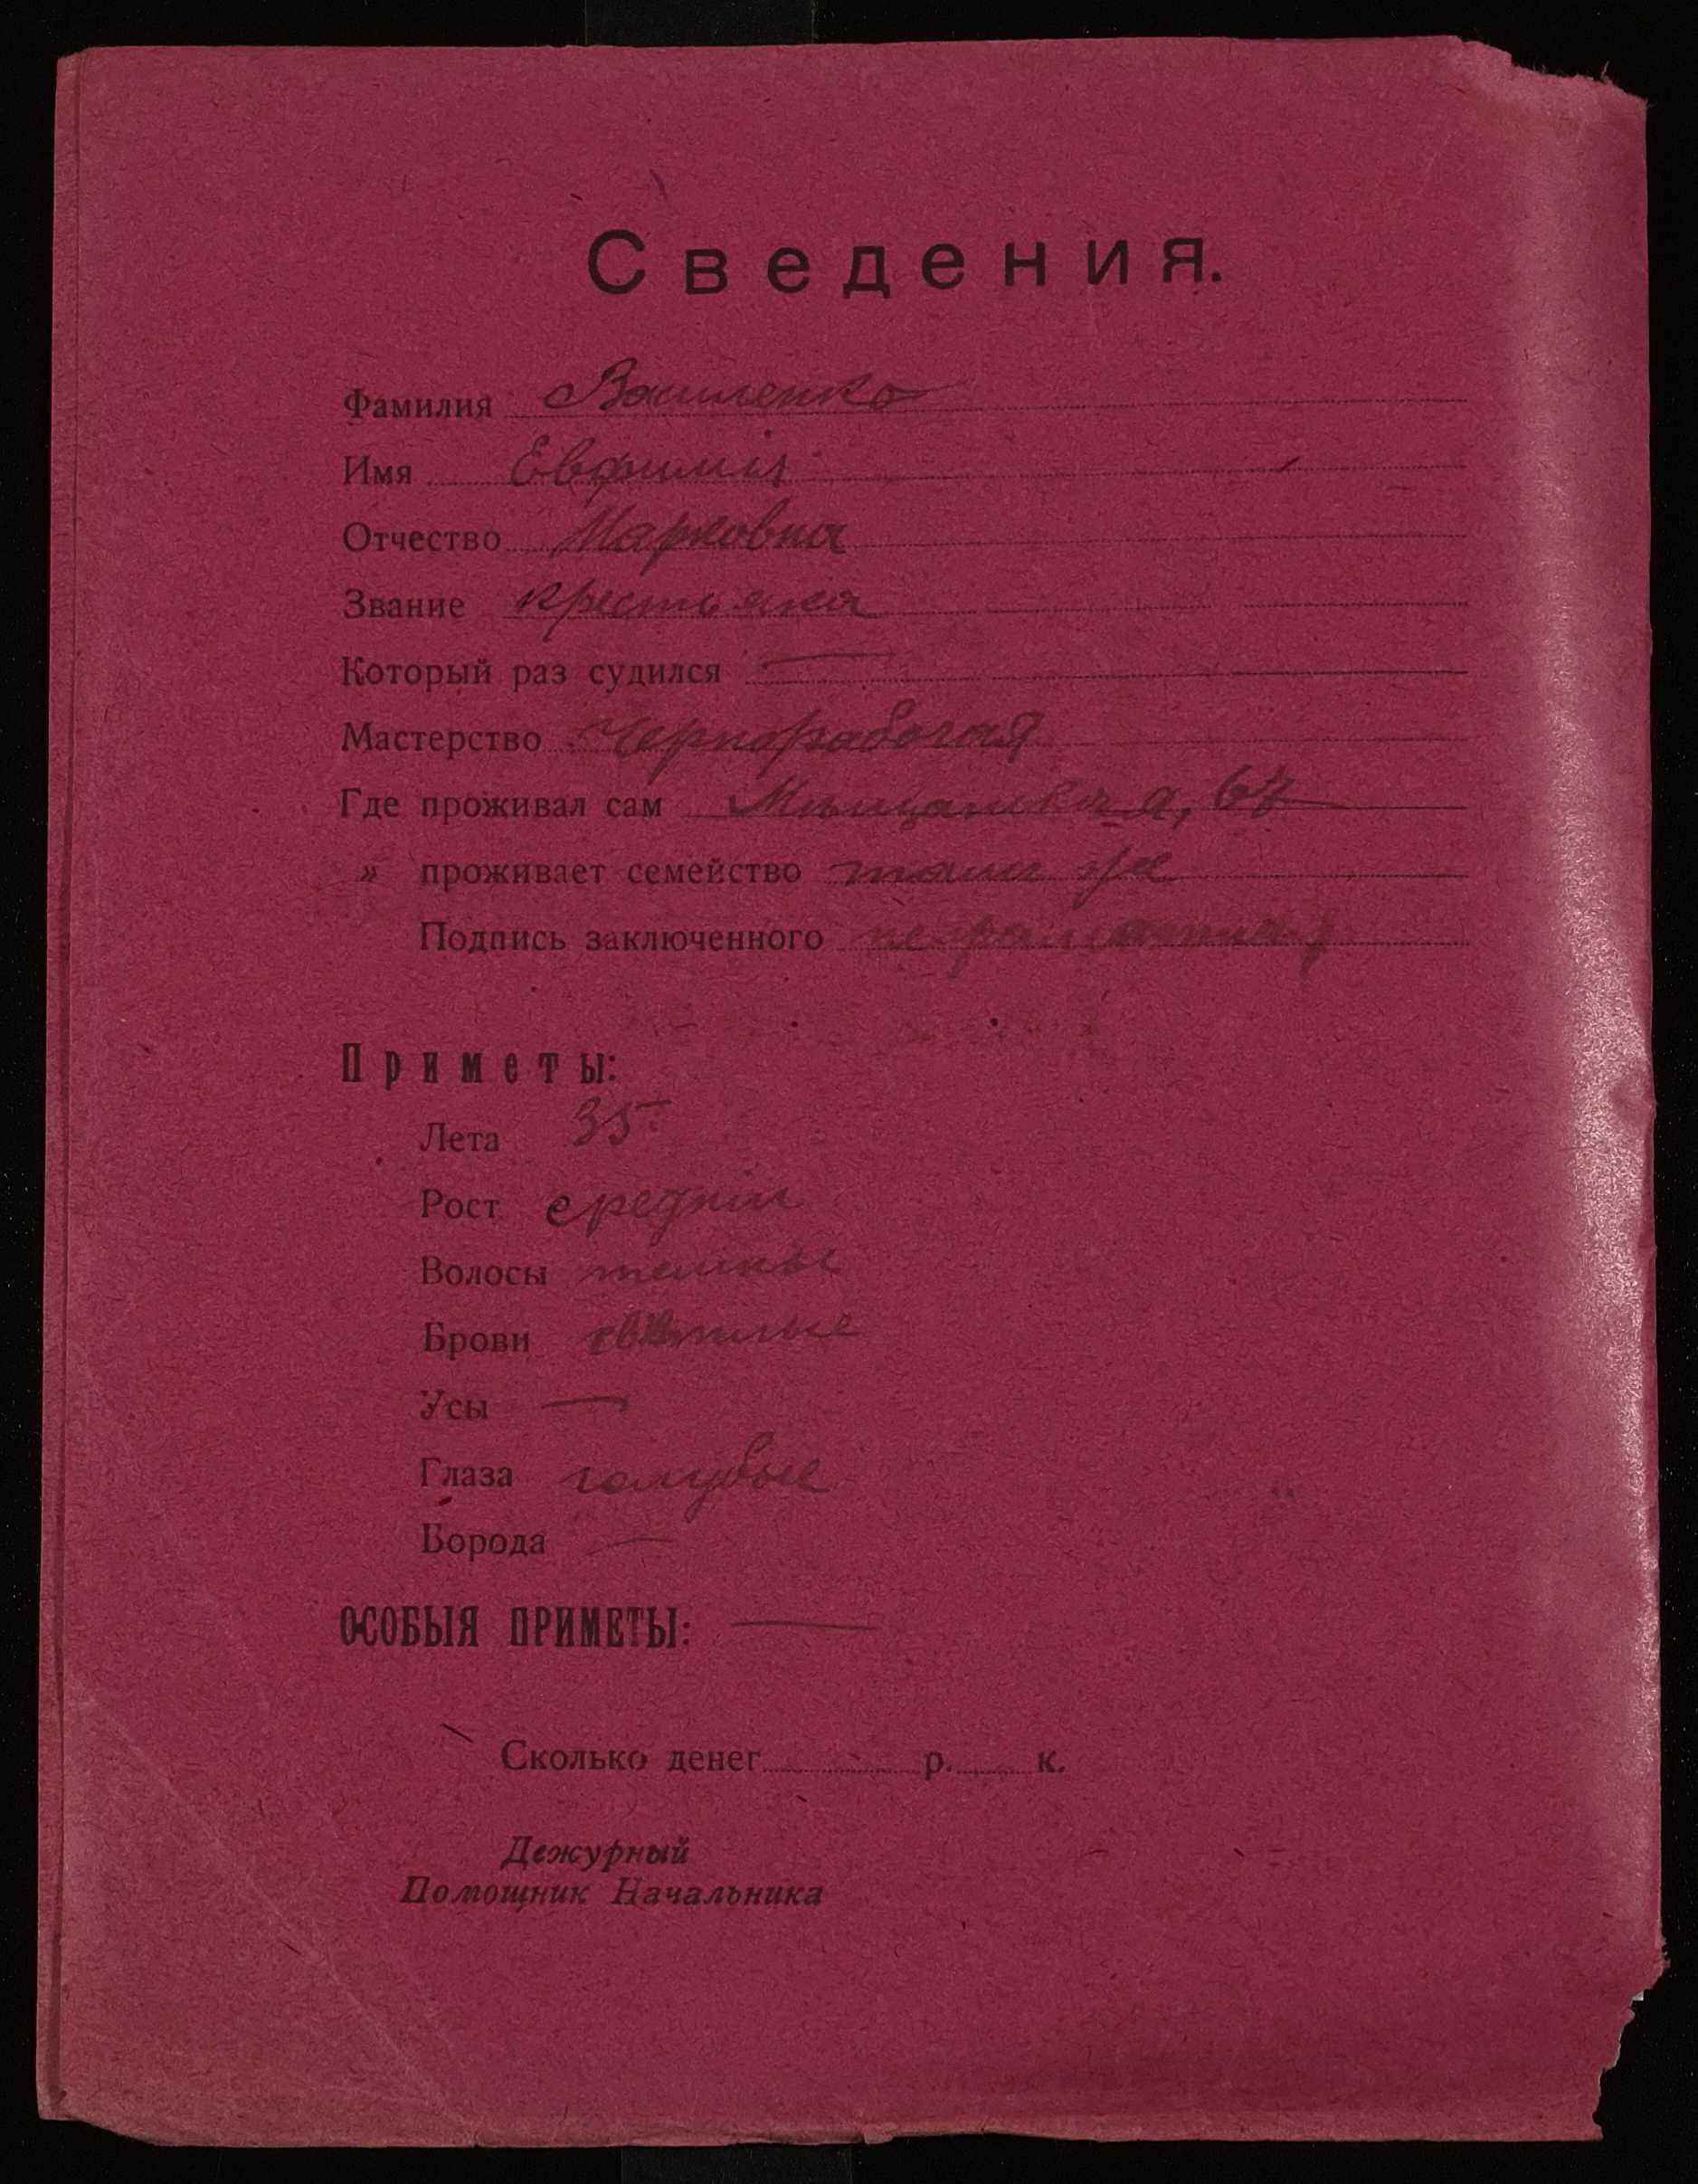 Сведения.
Фамилия Василенко
Имя Евфимия
Отчество Марковна
Звание крестьянка
Который раз судился —
Мастерство Чернорабочая
Где проживал сам 67
» проживает семейство там же
Подпись заключенного неграмотная
Приметы:
Лета 35
Рост средний
Волосы темные
Брови
Усы —
Глаза голубые
Борода —
ОСОБЫЯ ПРИМЕТЫ: —
Сколько денег р. к.
Дежурный
Помощник Начальника